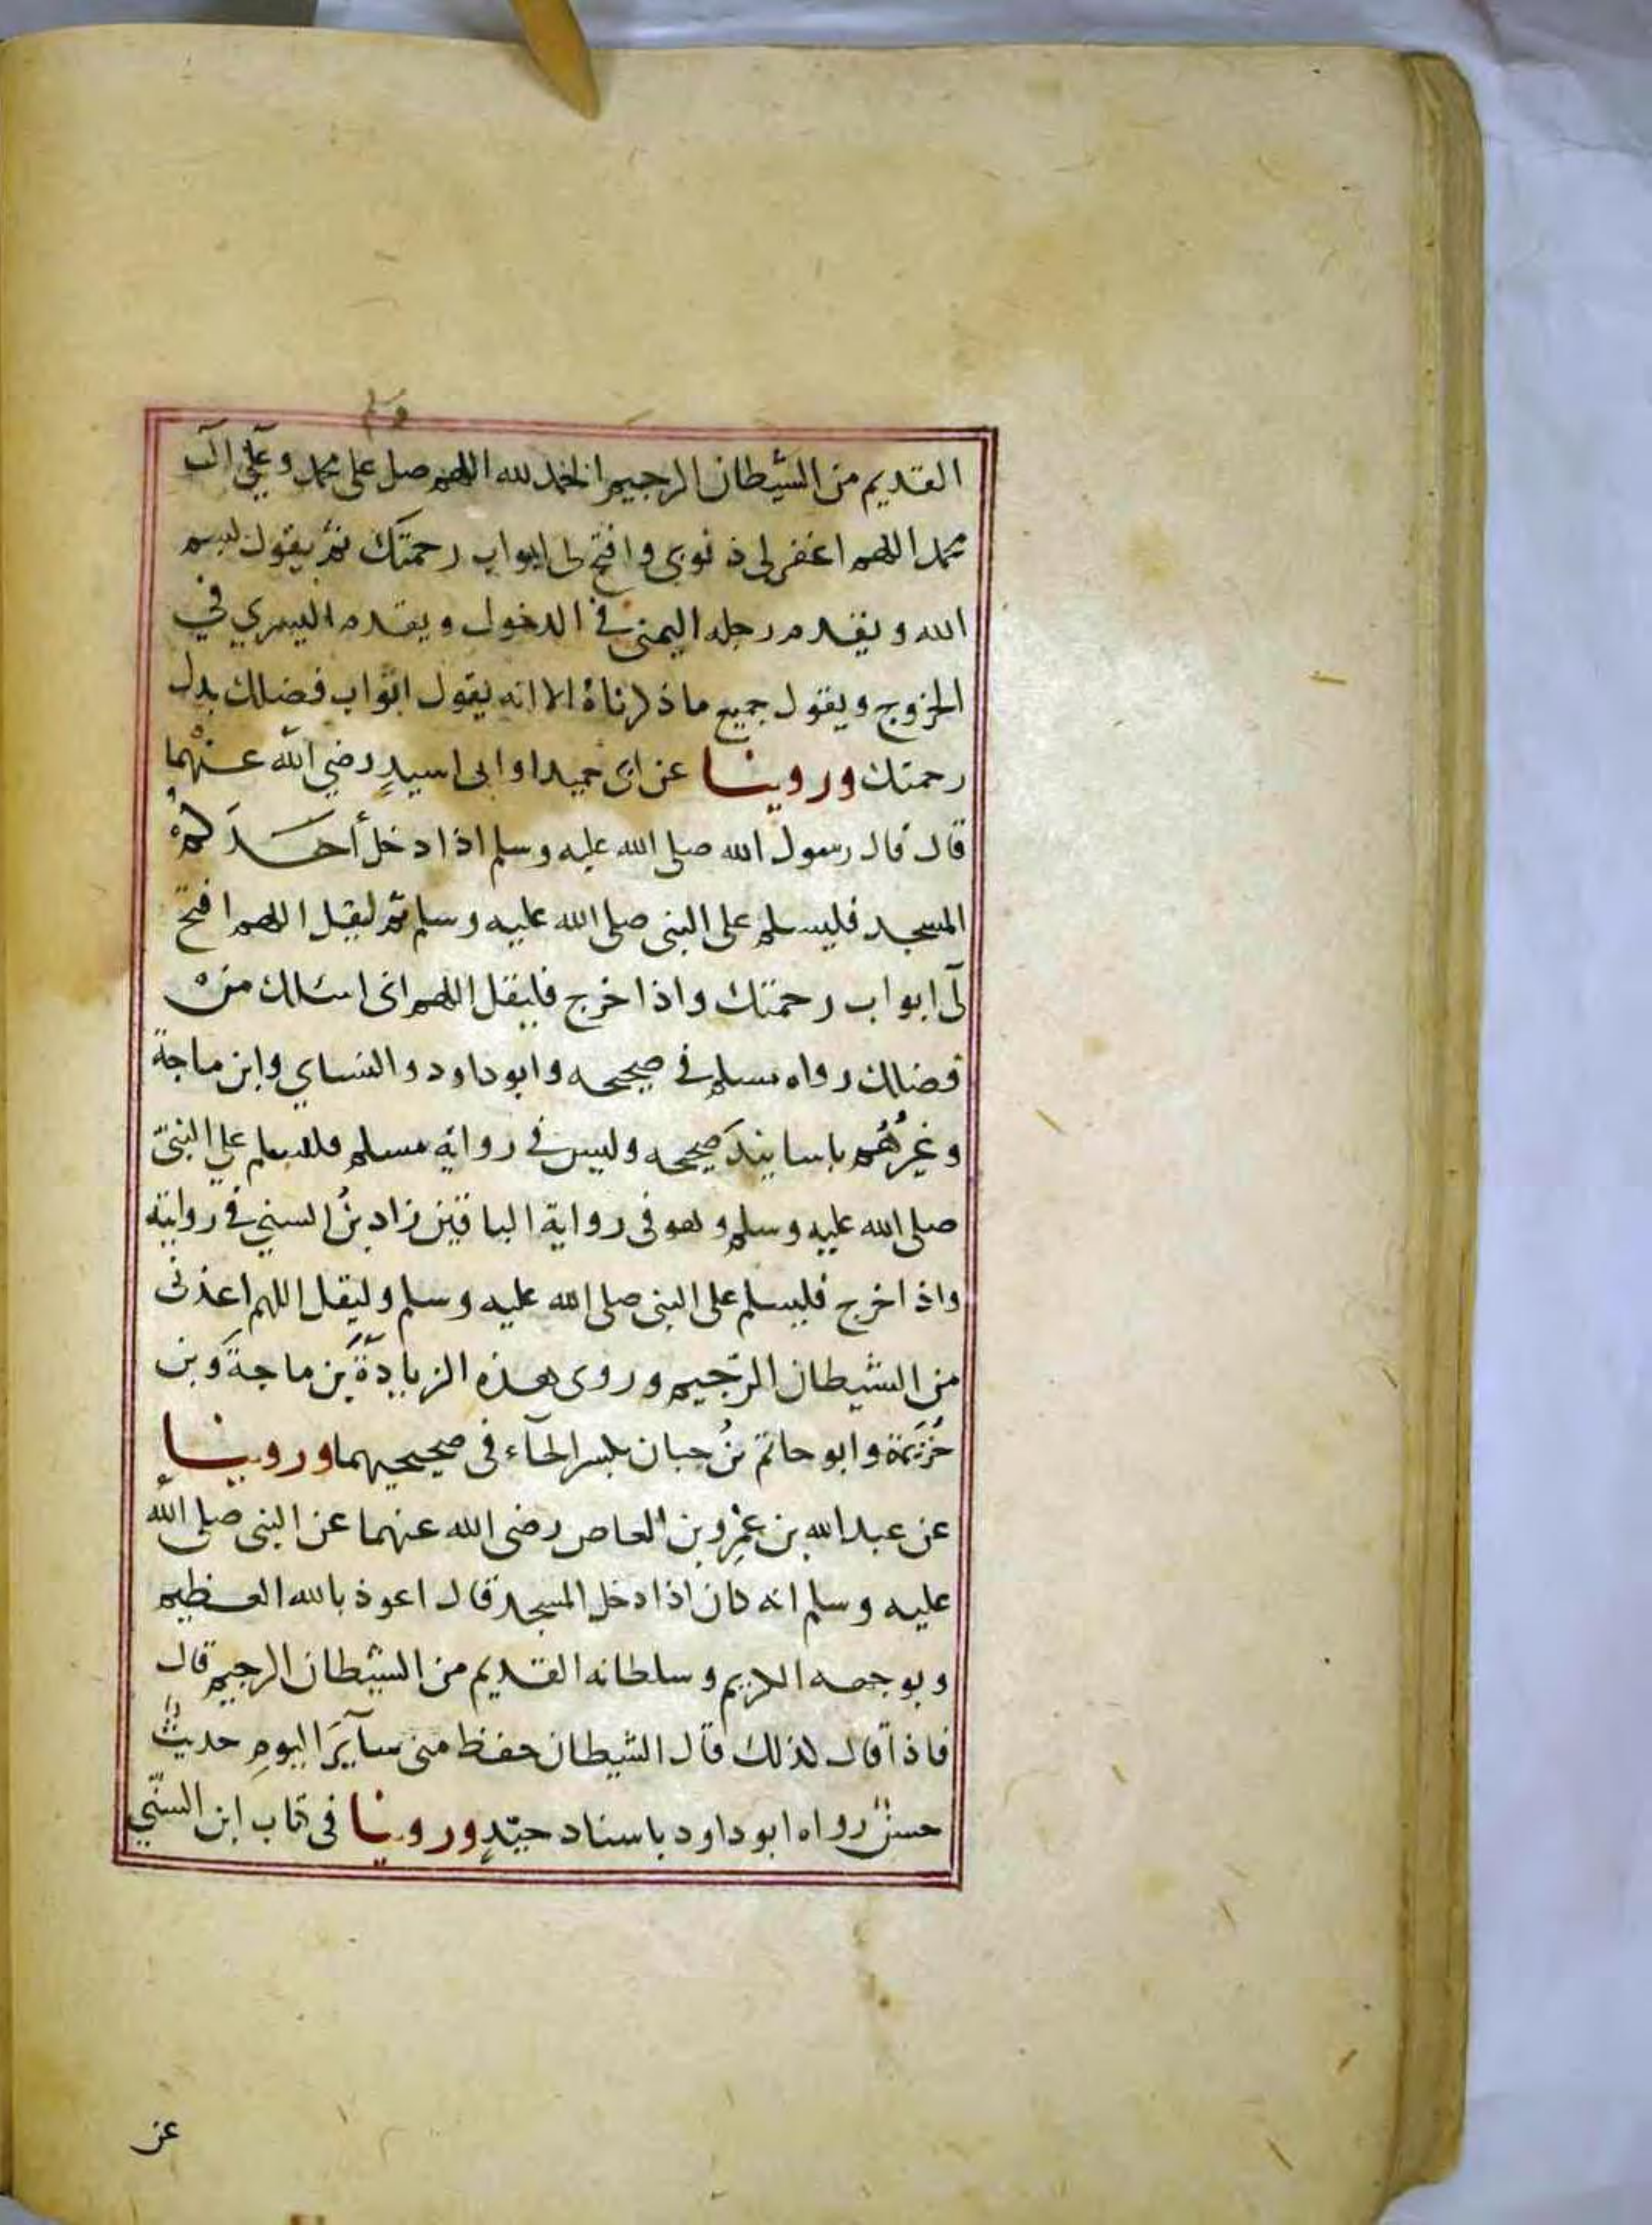 وسلم
القديم من الشيطان الرجيم الحمد لله اللهم صل على محمد وعلى آل
محمد اللهم اغفر لى ذنوبى وافتح لى ابواب رحمتك ثم يقول بسم
الله ويقدم رجله اليمنى في الدخول ويقدم اليسري في
الخروج ويقول جميع ماذكرناهُ الا انه يقول ابْواب فضلك بدل
رحمتك وروينا عن ابى حميد اوابى اسيدٍ رضي الله عنْهما
قال قال رسول الله صلى الله عليه وسلم اذا دخل أحَدَكمْ
المسجد فليسلم على النبى صلى الله عليه وسلم ثم ليقل اللهم افتح
لى ابواب رحمتك واذا خرج فليقل اللهم انى اسئلك منْ
فضلك رواه مسلم في صحيحه وابو داود والنساي وابن ماجة
وغيرُهُم باسانيدَ صحيحه وليس في رواية مسلم فليسلم علي النبىّ
صلى الله عليه وسلم وهو فى رواية الباقين زاد بنُ السني في روايته
واذا خرج فليسلم على النبى صلى الله عليه وسلم وليقل اللهم اعذنى
من الشيطان الرّجيم وروى هذه الزيادةَ بن ماجةَ وَبن
خُزَيمة وابو حاتم بنُ حبان بكسر الحآء فى صحيحيهما وروينا
عن عبدالله بن عمْرِو بن العاص رضى الله عنهما عن النبى صلى الله
عليه وسلم انه كان اذا دخل المسجد قال اعوذ بالله العظيم
وبوجهه الكريم وسلطانه القديم من الشيطان الرجيم قال
فاذا قال لذلك قال الشيطان حفظ منى سآيَر اليومِ حديثٌ
حسنٌ رواه ابو داود باسناد جيّدٍ وروينا فى كتاب ابن السنّي
عن